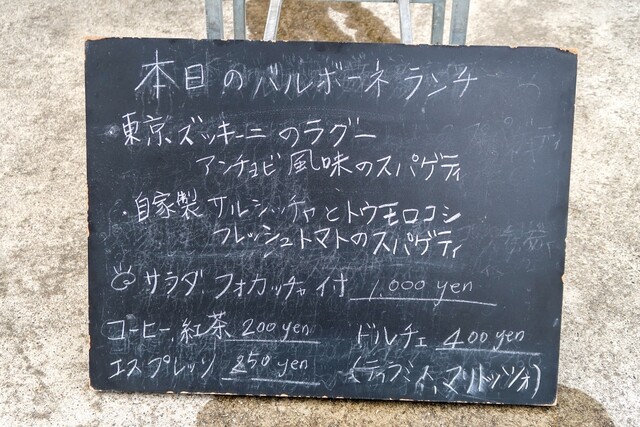 本日のバルボーネランチ
東京ズッキーニのラグー
アンチョビ風味のスパゲティ
・自家製サルシッチャとトウモロコシ
フレッシュトマトのスパゲティ
サラダ、フォカッチャ付 1,000 yen
コーヒー、紅茶 200 yen ドルチェ 400 yen
エスプレッソ 250 yen (ティラミス、マリトッツォ)